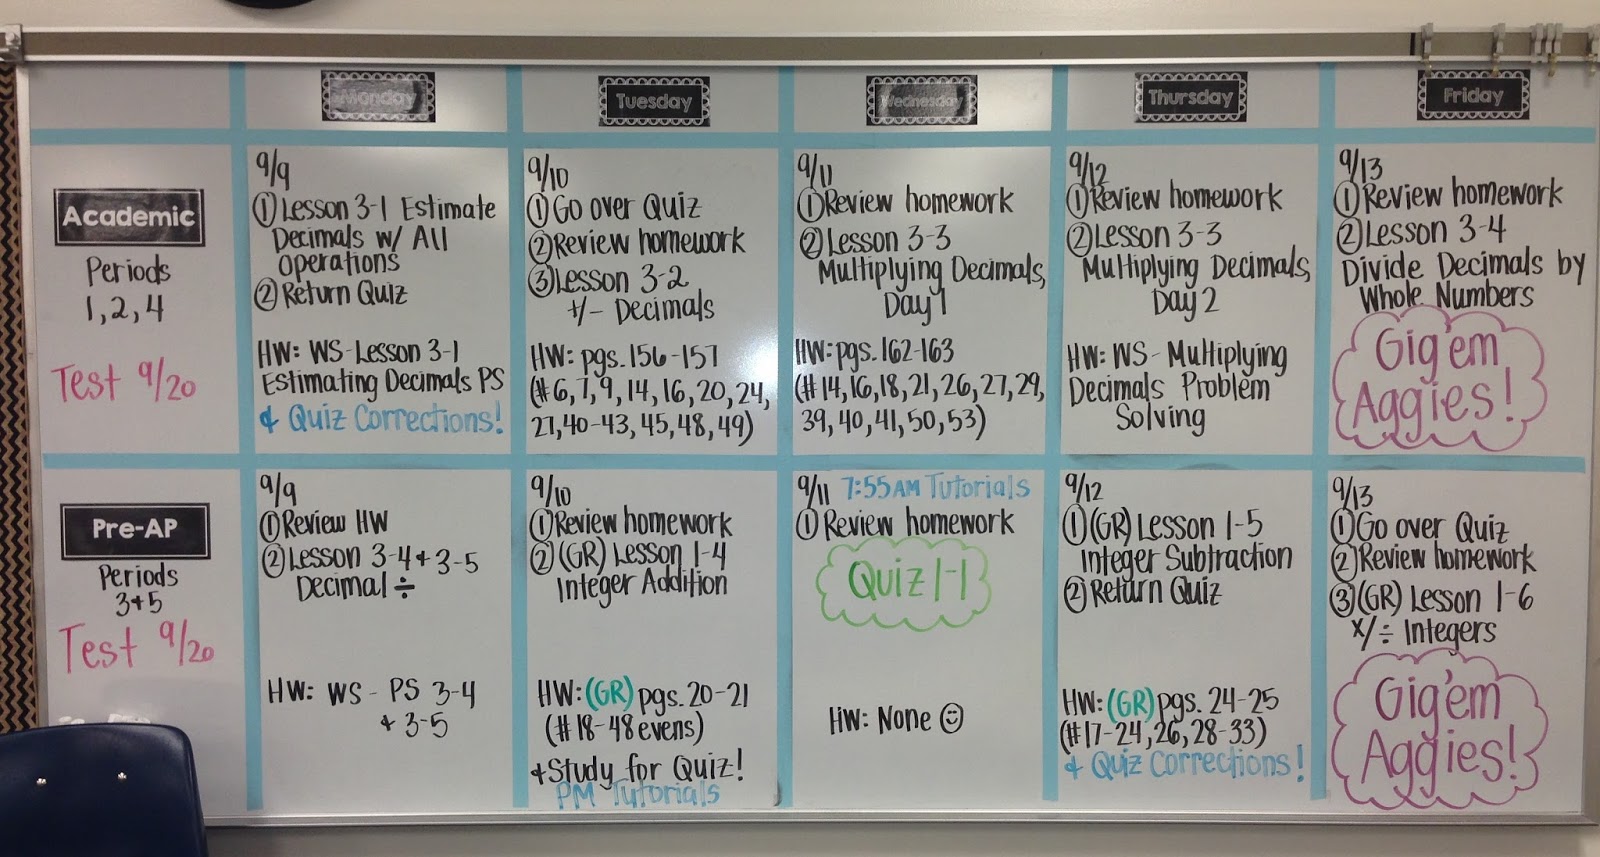 Monday
Tuesday
Wednesday
Thursday
Friday
Academic
Periods
1, 2, 4
Test 9/20
9/9
① Lesson 3-1 Estimate
Decimals w/ All
Operations
② Return Quiz
HW: WS-Lesson 3-1
Estimating Decimals PS
& Quiz Corrections!
9/10
① Go over Quiz
② Review homework
③ Lesson 3-2
+/- Decimals
HW: pgs. 156-157
(#6, 7, 9, 14, 16, 20, 24,
27, 40-43, 45, 48, 49)
9/11
① Review homework
② Lesson 3-3
Multiplying Decimals,
Day 1
HW: pgs. 162-163
(#14, 16, 18, 21, 26, 27, 29,
39, 40, 41, 50, 53)
9/12
① Review homework
② Lesson 3-3
Multiplying Decimals,
Day 2
HW: WS - Multiplying
Decimals Problem
Solving
9/13
① Review homework
② Lesson 3-4
Divide Decimals by
Whole Numbers
Gig'em
Aggies!
Pre-AP
Periods
3+5
Test 9/20
9/9
① Review HW
② Lesson 3-4 & 3-5
Decimal ÷
HW: WS - PS 3-4
& 3-5
9/10
① Review homework
② (GR) Lesson 1-4
Integer Addition
HW: (GR) pgs. 20-21
(#18-48 evens)
& Study for Quiz!
PM Tutorials
9/11 7:55AM Tutorials
① Review homework
Quiz 1-1
HW: None ☺
9/12
① (GR) Lesson 1-5
Integer Subtraction
② Return Quiz
HW: (GR) pgs. 24-25
(#17-24, 26, 28-33)
& Quiz Corrections!
9/13
① Go over Quiz
② Review homework
③ (GR) Lesson 1-6
x/÷ Integers
Gig'em
Aggies!